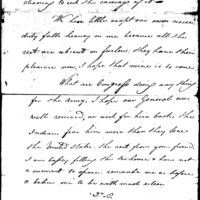 sharing to eat the carcass of it
We have little except our usual news
duty falls heavy on me because all the
rest are absent on furlow. they have their
pleasure now, I hope that mine is to come
What are Congress doing any thing
for the Army, I hope our General was
well received, we wish for him back. the
Indians fear him more than they love
the United States. the rest from your friend
I am busy filling the
not
a moment to spare. remember me as before
& believe me to be with much esteem